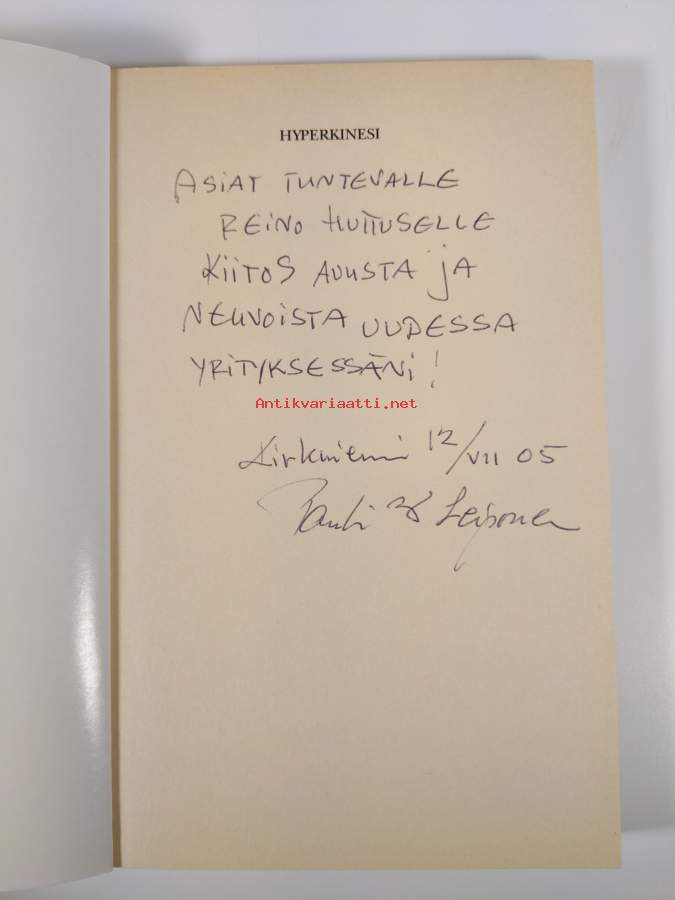 HYPERKINESI
ASIAT TUNTEVALLE
REINO HUITUSELLE
KIITOS AVUSTA JA
NEUVOISTA UUDESSA
YRITYKSESSÄNI!
Antikvariaatti.net
Kirkniemi 12/VII 05